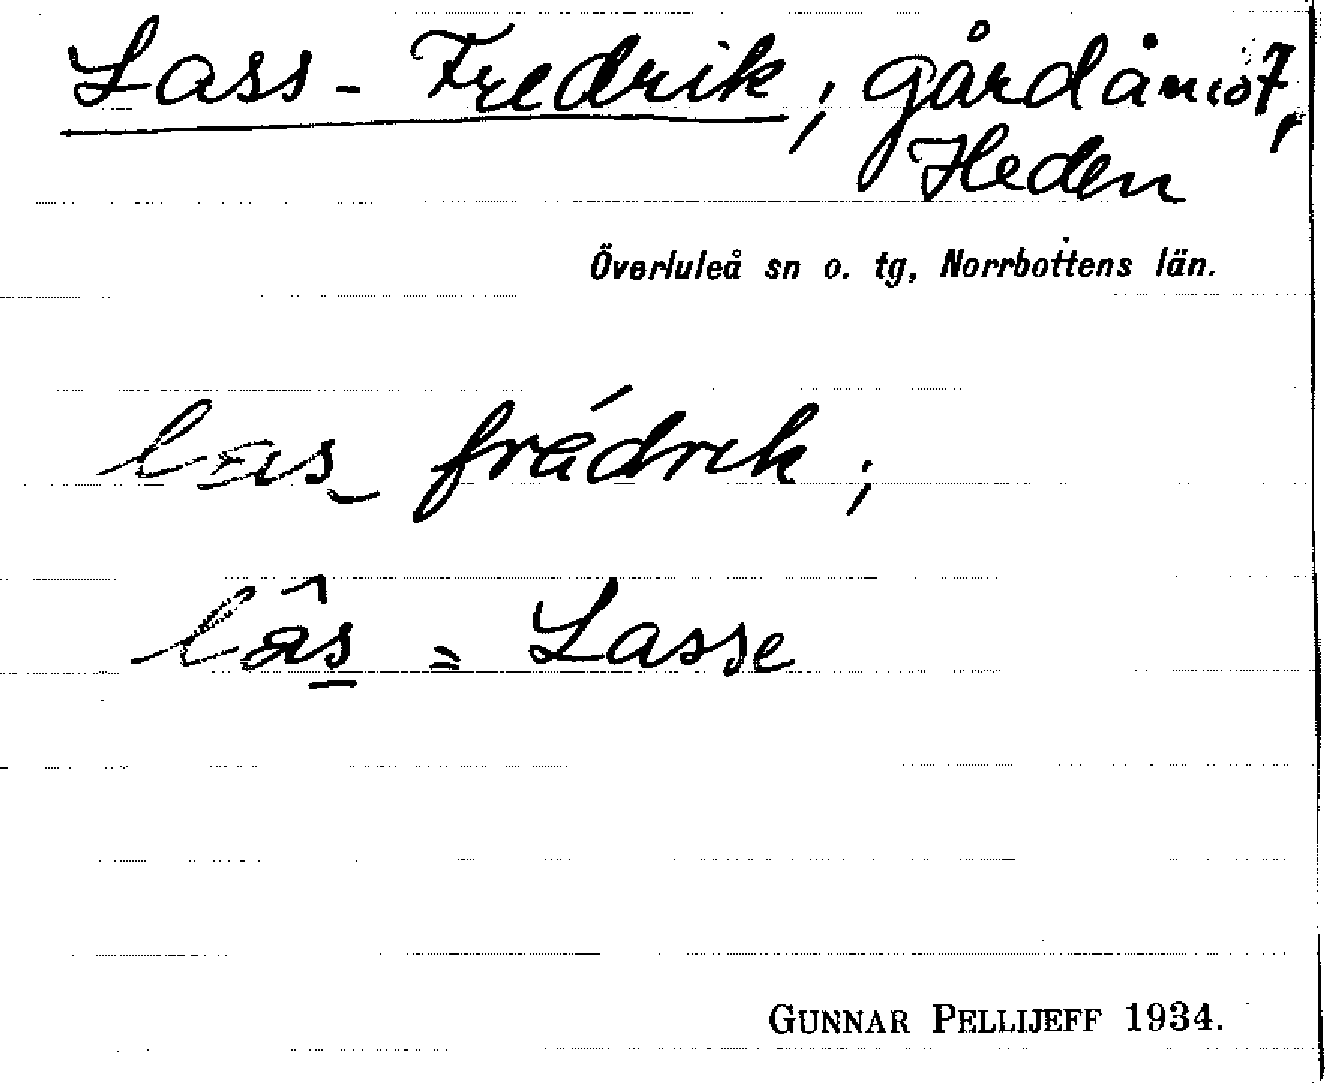 Lass-Fredrik, gård å nr 7,
Heden
Överluleå sn o. tg, Norrbottens län.
las frádrik,
lâs = Lasse
GUNNAR PELLIJEFF 1934.